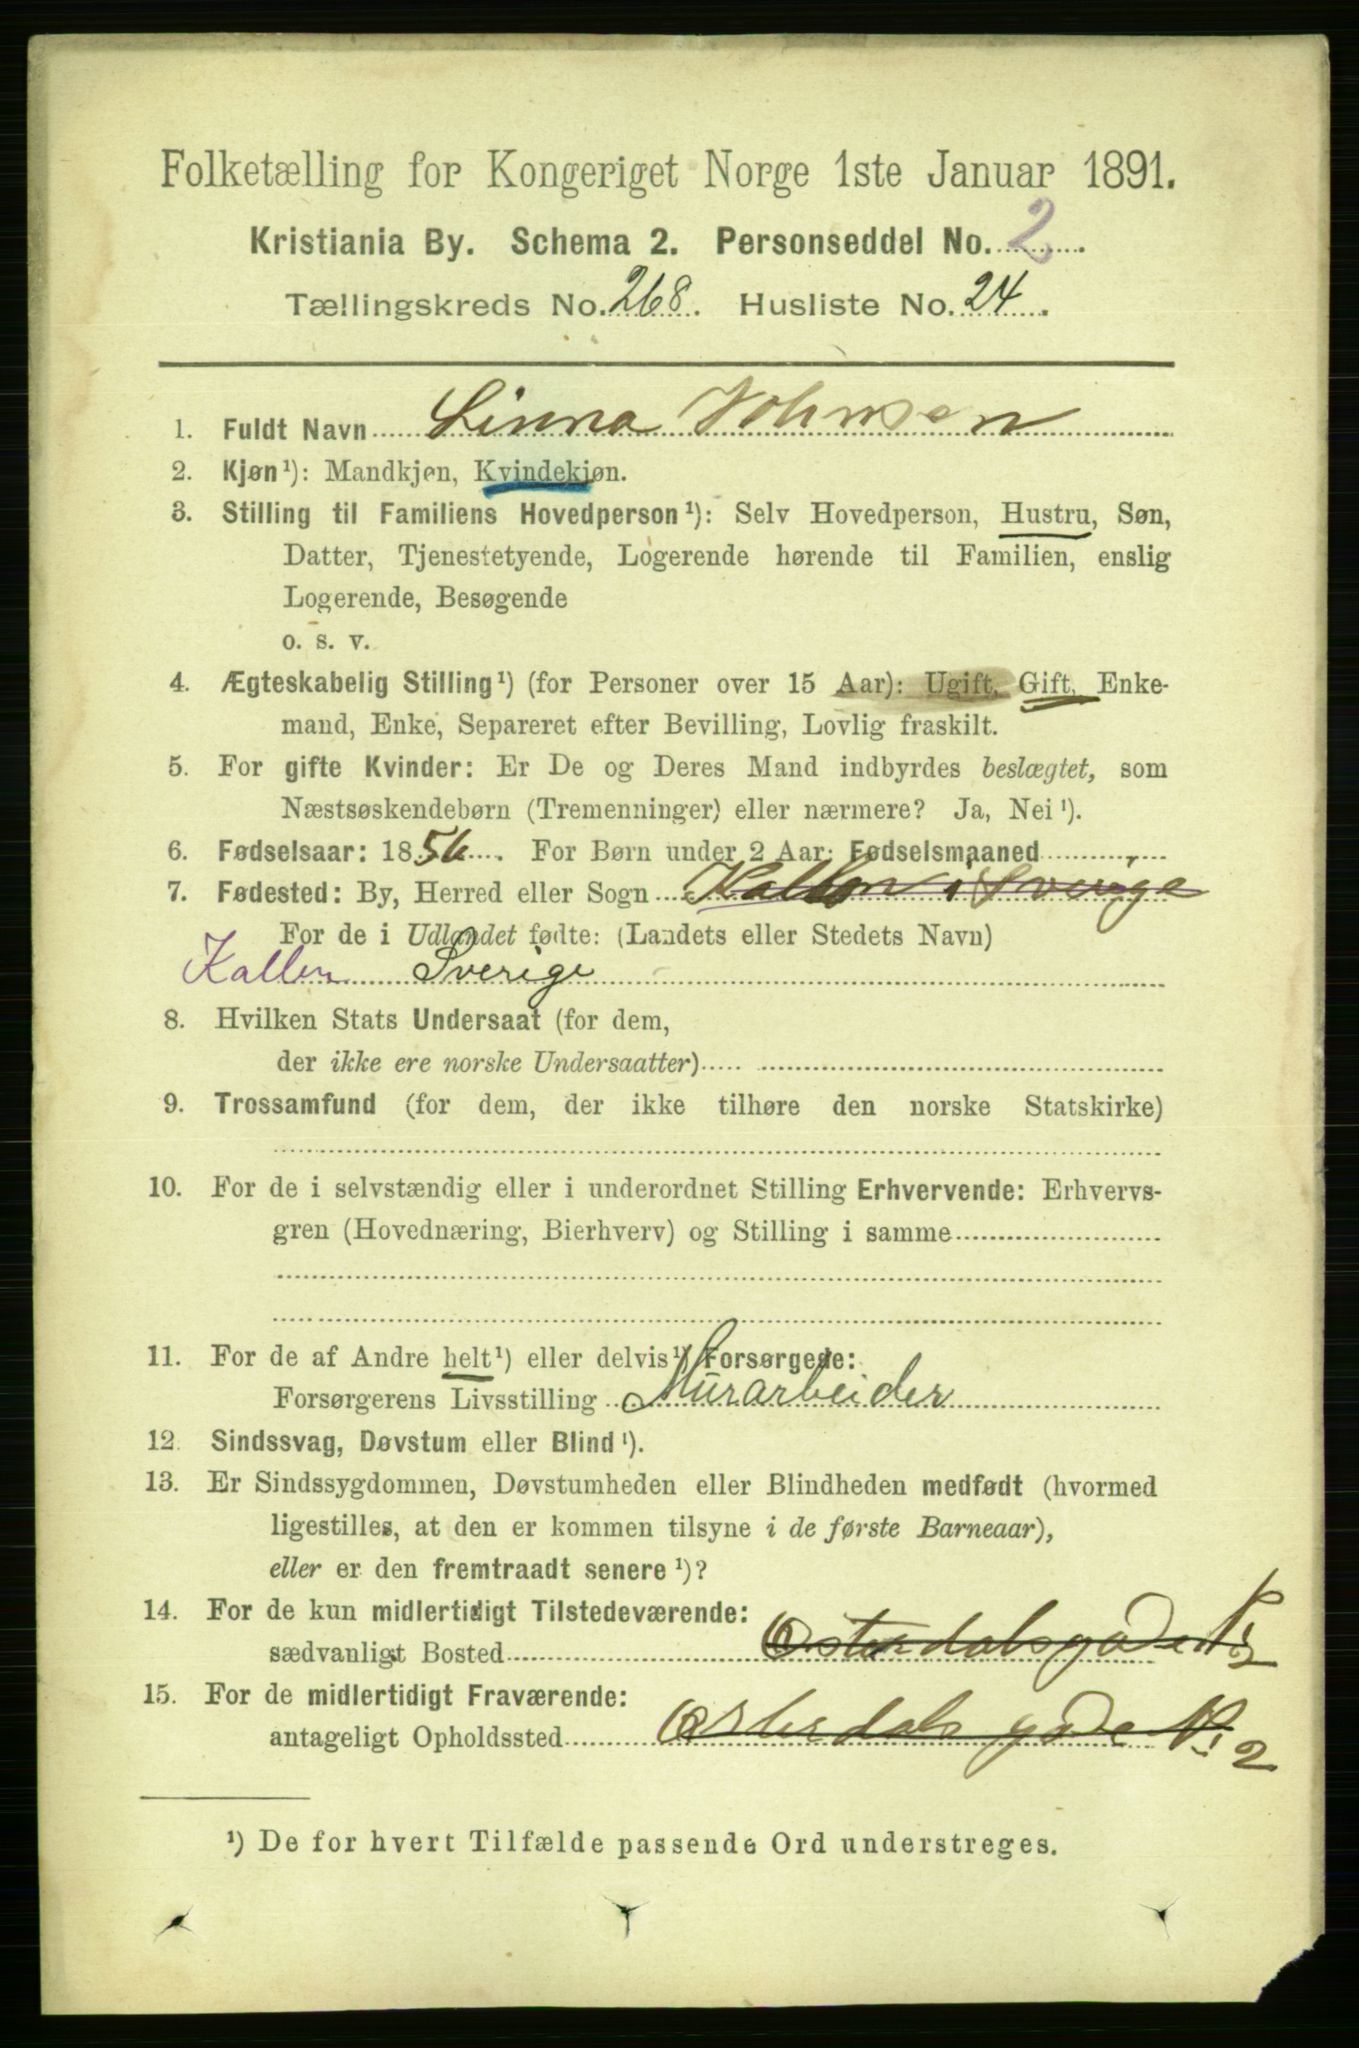 Folketælling for Kongeriget Norge 1ste Januar 1891.
Kristiania By. Schema 2. Personseddel No. 2.
Tællingskreds No. 268. Husliste No. 24.
1. Fuldt Navn Linna Johnsen
2. Kjøn¹): Mandkjøn, Kvindekjøn.
3. Stilling til Familiens Hovedperson¹): Selv Hovedperson, Hustru, Søn,
Datter, Tjenestetyende, Logerende hørende til Familien, enslig
Logerende, Besøgende
o. s. v.
4. Ægteskabelig Stilling¹) (for Personer over 15 Aar): Ugift, Gift, Enke-
mand, Enke, Separeret efter Bevilling, Lovlig fraskilt.
5. For gifte Kvinder: Er De og Deres Mand indbyrdes beslægtet, som
Næstsøskendebørn (Tremenninger) eller nærmere? Ja, Nei¹).
6. Fødselsaar: 1856. For Børn under 2 Aar: Fødselsmaaned
7. Fødested: By, Herred eller Sogn Kallen i Sverige
For de i Udlandet fødte: (Landets eller Stedets Navn)
Kallen Sverige
8. Hvilken Stats Undersaat (for dem,
der ikke ere norske Undersaatter)
9. Trossamfund (for dem, der ikke tilhøre den norske Statskirke)
10. For de i selvstændig eller i underordnet Stilling Erhvervende: Erhvervs-
gren (Hovednæring, Bierhverv) og Stilling i samme
11. For de af Andre helt¹) eller delvis¹) Forsørgede:
Forsørgerens Livsstilling Murarbeider
12. Sindssvag, Døvstum eller Blind¹).
13. Er Sindssygdommen, Døvstumheden eller Blindheden medfødt (hvormed
ligestilles, at den er kommen tilsyne i de første Barneaar),
eller er den fremtraadt senere¹)?
14. For de kun midlertidigt Tilstedeværende:
sædvanligt Bosted Østerdalsgade N: 2
15. For de midlertidigt Fraværende:
antageligt Opholdssted Østerdals gade N: 2
¹) De for hvert Tilfælde passende Ord understreges.